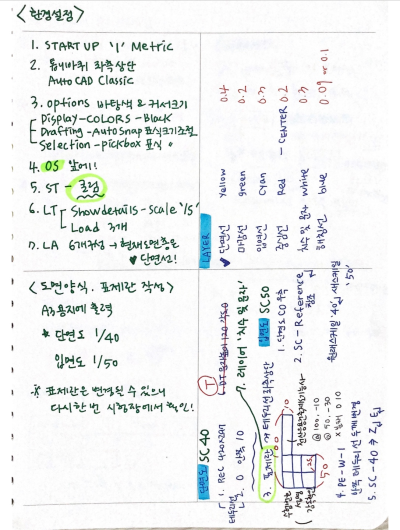 <환경설정>
1. STARTUP '1' Metric
2. 톱니바퀴 좌측상단
AutoCAD Classic
3. options 바탕색 & 커서크기
Display-COLORS-Black
Drafting-AutoSnap 표식크기조절
Selection-Pickbox 표식
4. OS 앞에!
5. ST -
6. LT Showdetails-scale '15'
Load 3개
7. LA 6개구성 → 현재도면층은
♥ 단면선!
LAYER
✓ 단면선 yellow 0.4
마감선 green 0.2
입면선 Cyan 0.3
중심선 Red - CENTER 0.2
치수 및 문자 white 0.3
해칭선 blue 0.09 or 0.1
<도면양식. 표제란 작성>
A3용지에 출력
* 단면도 1/40
입면도 1/50
※ 표제란은 변경될 수 있으니
다시한번 시험장에서 확인!
단면도 SC40
1. REC 420×297
테두리선
2. O 안쪽 10
3. 표제란 → 테두리선 좌측상단
@100,-10
@50,-30
4. PE-W-1
안쪽 테두리선 두께변경
5. SC-40
7. 레이어 '치수 및 문자'
입면도 SC50
1. 단면도 CO 우측
2. SC-Reference
참조
'50'